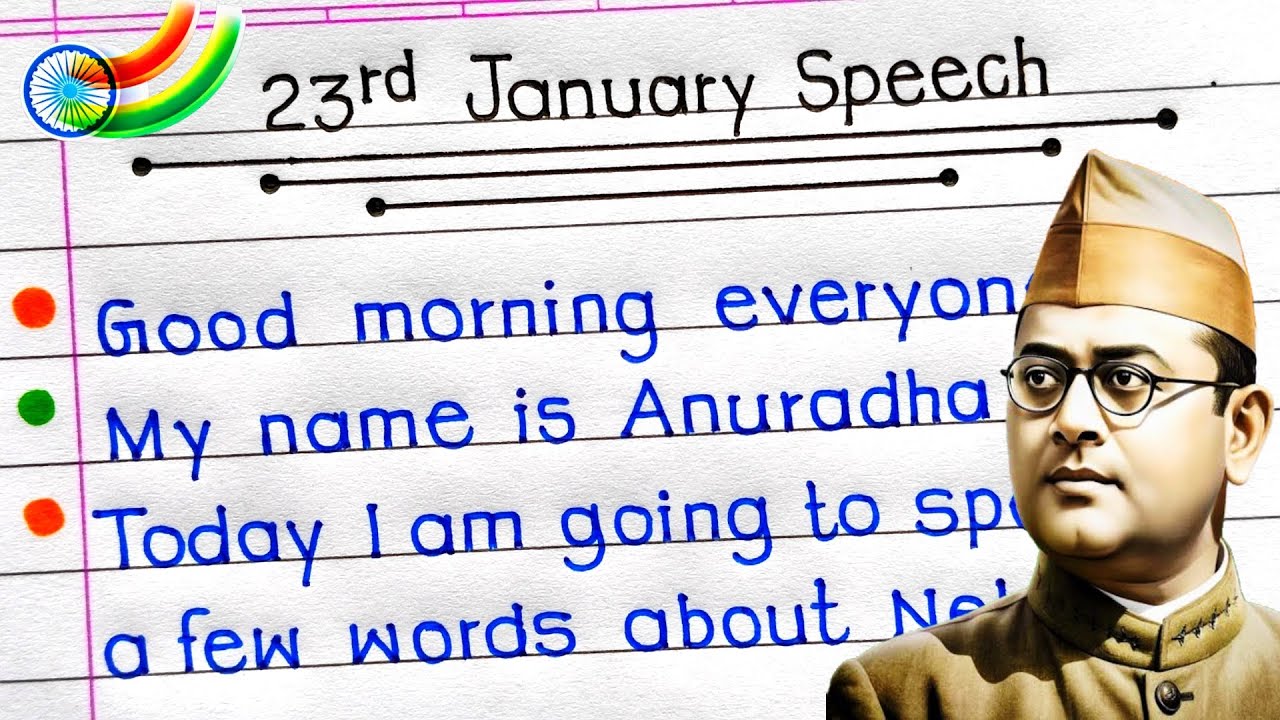 23rd January Speech
Good morning everyone
My name is Anuradha
Today I am going to
a few words about